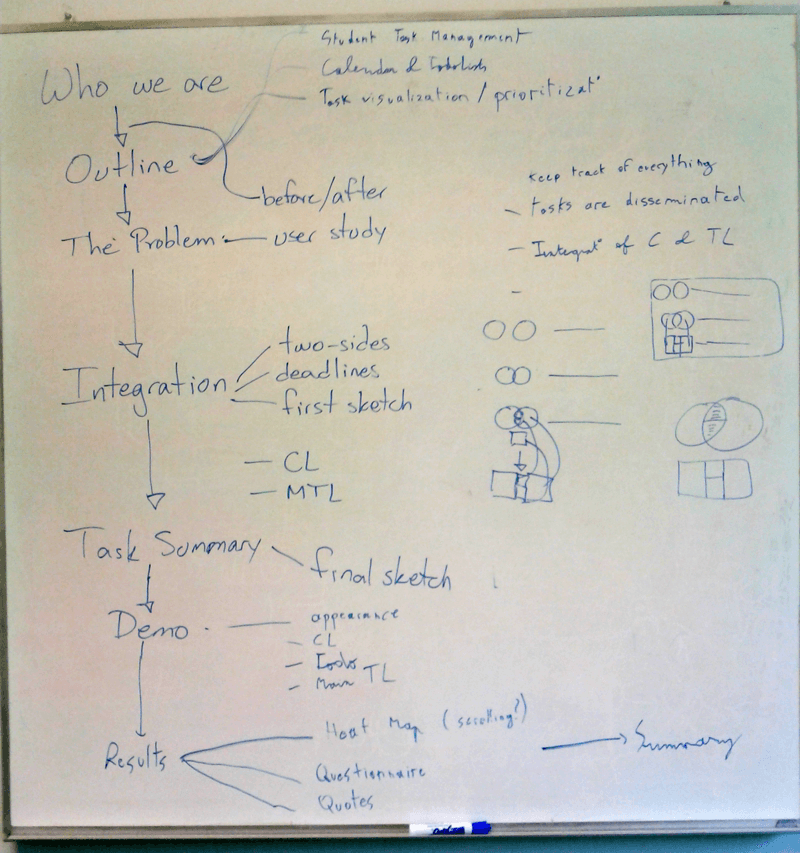 Student Task Management
Calendar & Todolists
Task visualization / prioritizat°
Who we are
Outline
before/after
The Problem
user study
keep track of everything
– tasks are disseminated
– Integrat° of C & TL
–
Integration
two-sides
deadlines
first sketch
– CL
– MTL
Task Summary
final sketch
Demo
appearance
– CL
– Tasks
– Main TL
Results
Heat Map (scrolling?)
Questionnaire
Quotes
Summary